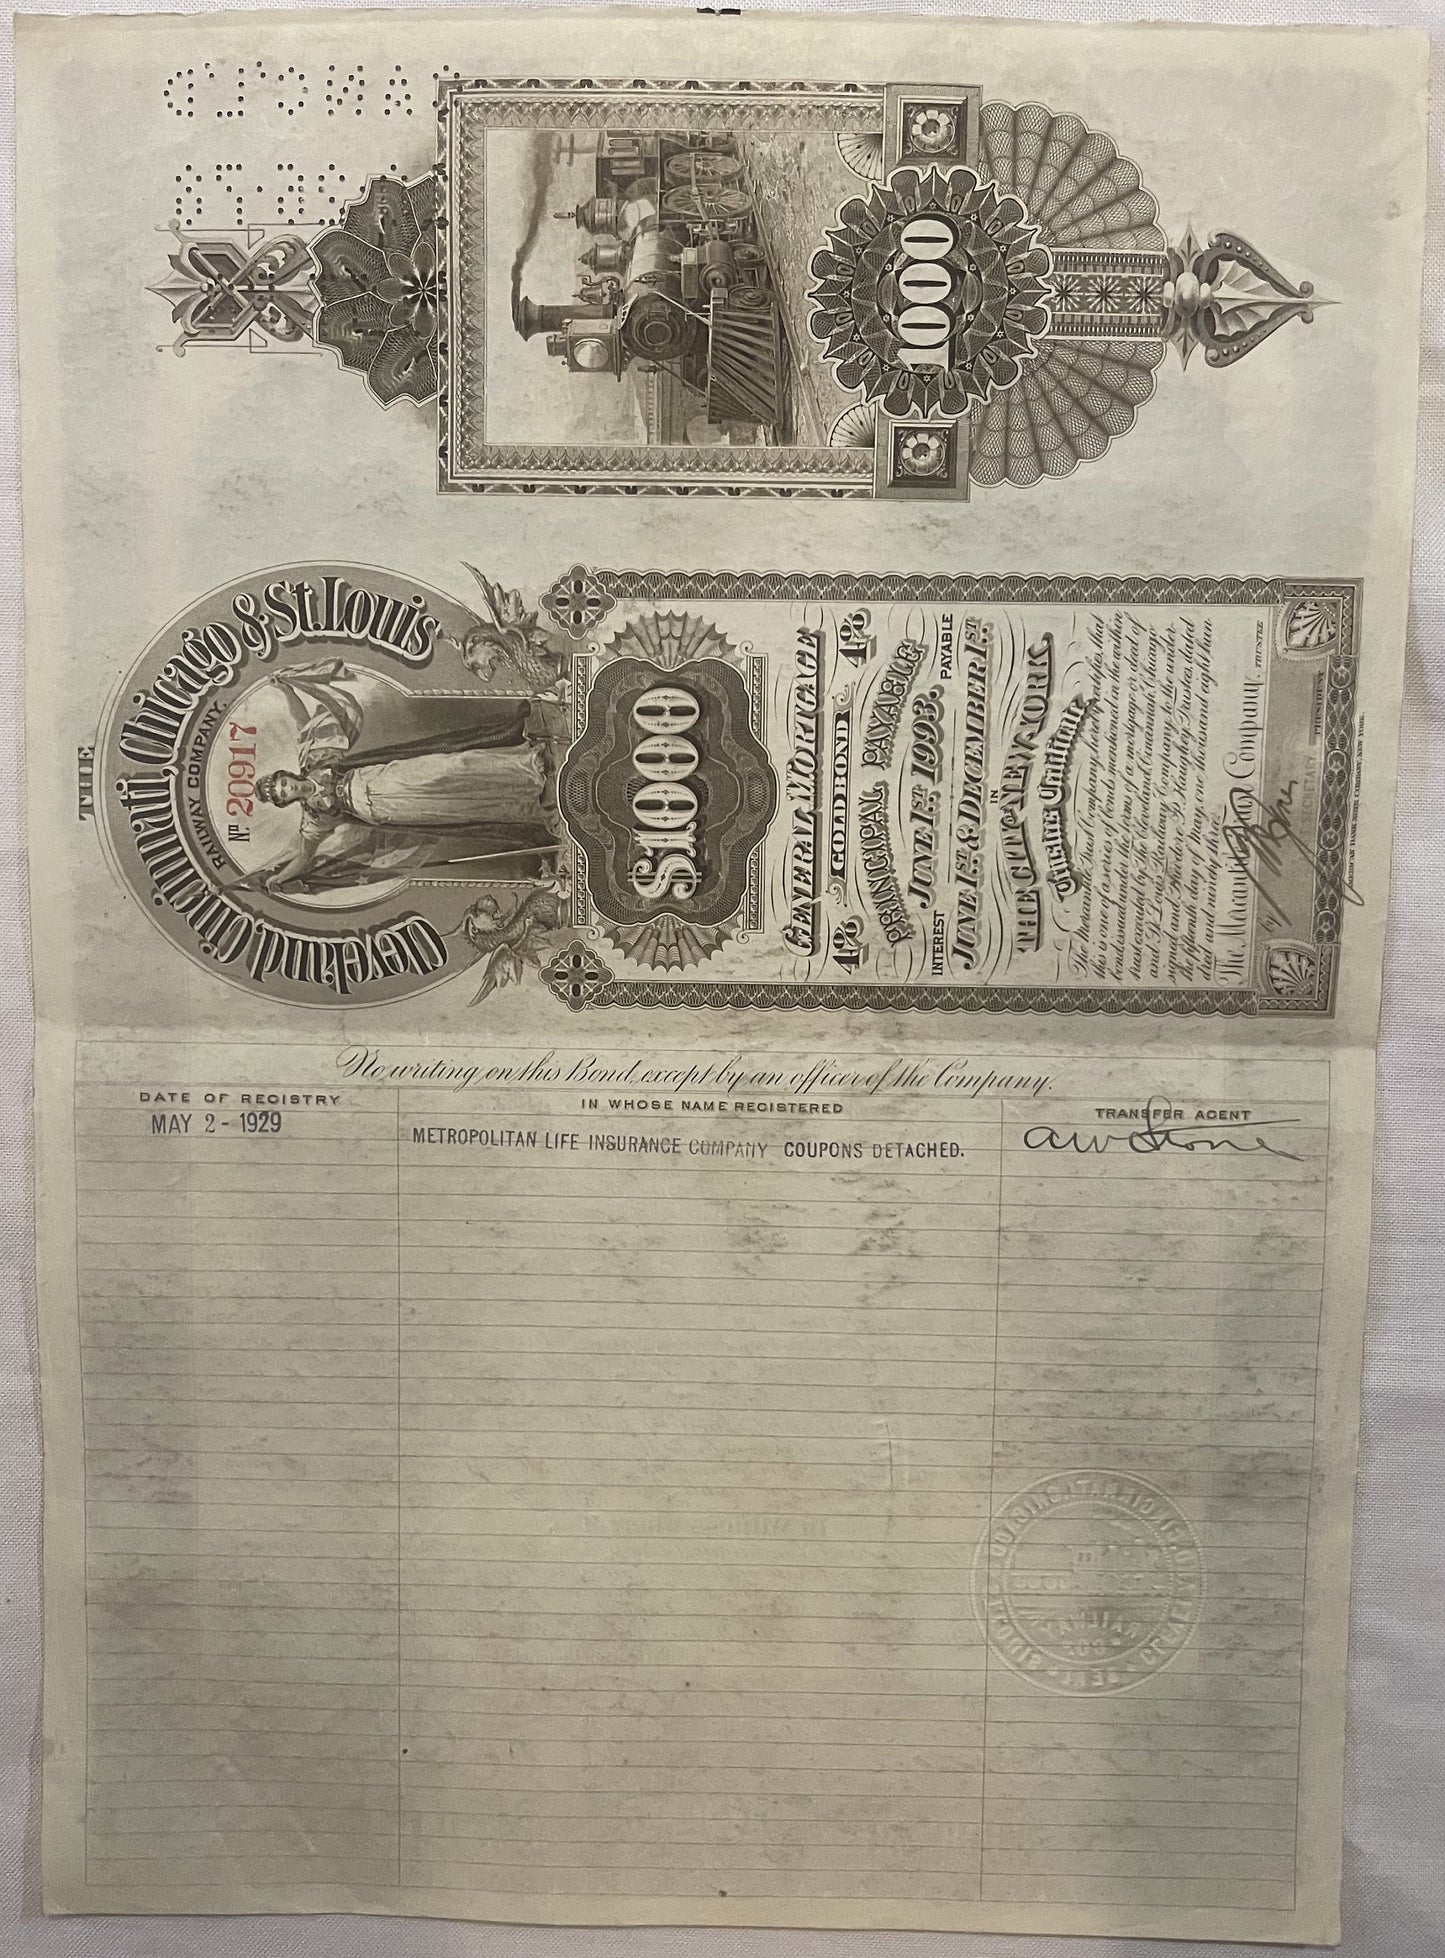 THE
Cleveland, Cincinnati, Chicago & St. Louis
RAILWAY COMPANY.
No. 20917
$1000
GENERAL MORTGAGE
4% GOLD BOND 4%
PRINCIPAL PAYABLE
JUNE 1ST, 1993.
INTEREST PAYABLE
JUNE 1ST & DECEMBER 1ST
IN
THE CITY OF NEW YORK.
Trustee's Certificate
The Mercantile Trust Company, hereby certifies, that
this is one of a series of bonds mentioned in the within
bond issued under the terms of a mortgage or deed of
trust executed by The Cleveland, Cincinnati, Chicago
and St. Louis Railway Company to the under-
signed and Theodore P. Haughey, Trustees, dated
the fifteenth day of May, one thousand eight hun-
dred and ninety three.
The Mercantile Trust Company, TRUSTEE
by
SECRETARY PRESIDENT
AMERICAN BANK NOTE COMPANY, NEW YORK.
1000
No writing on this Bond, except by an officer of the Company.
DATE OF REGISTRY IN WHOSE NAME REGISTERED TRANSFER AGENT
MAY 2 - 1929 METROPOLITAN LIFE INSURANCE COMPANY COUPONS DETACHED. A W Stone